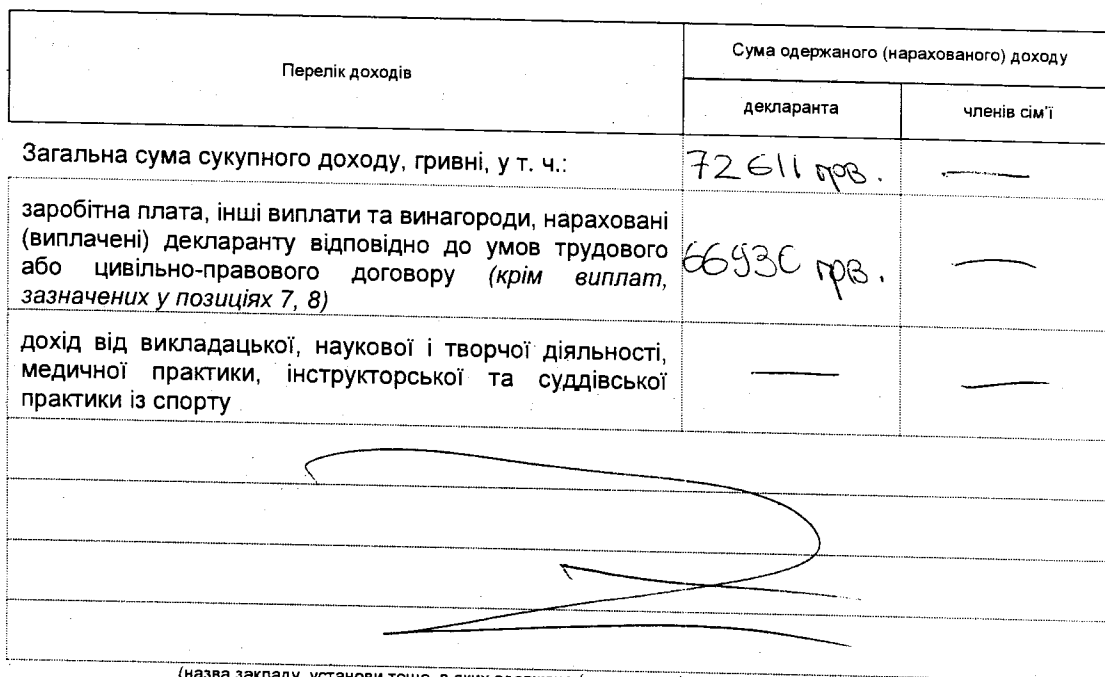 Перелік доходів
Сума одержаного (нарахованого) доходу
декларанта
членів сім'ї
Загальна сума сукупного доходу, гривні, у т. ч.:
72611 грв.
—
заробітна плата, інші виплати та винагороди, нараховані
(виплачені) декларанту відповідно до умов трудового
або цивільно-правового договору (крім виплат,
зазначених у позиціях 7, 8)
66930 грв.
—
дохід від викладацької, наукової і творчої діяльності,
медичної практики, інструкторської та суддівської
практики із спорту
—
—
(назва закладу, установи тощо, в яких